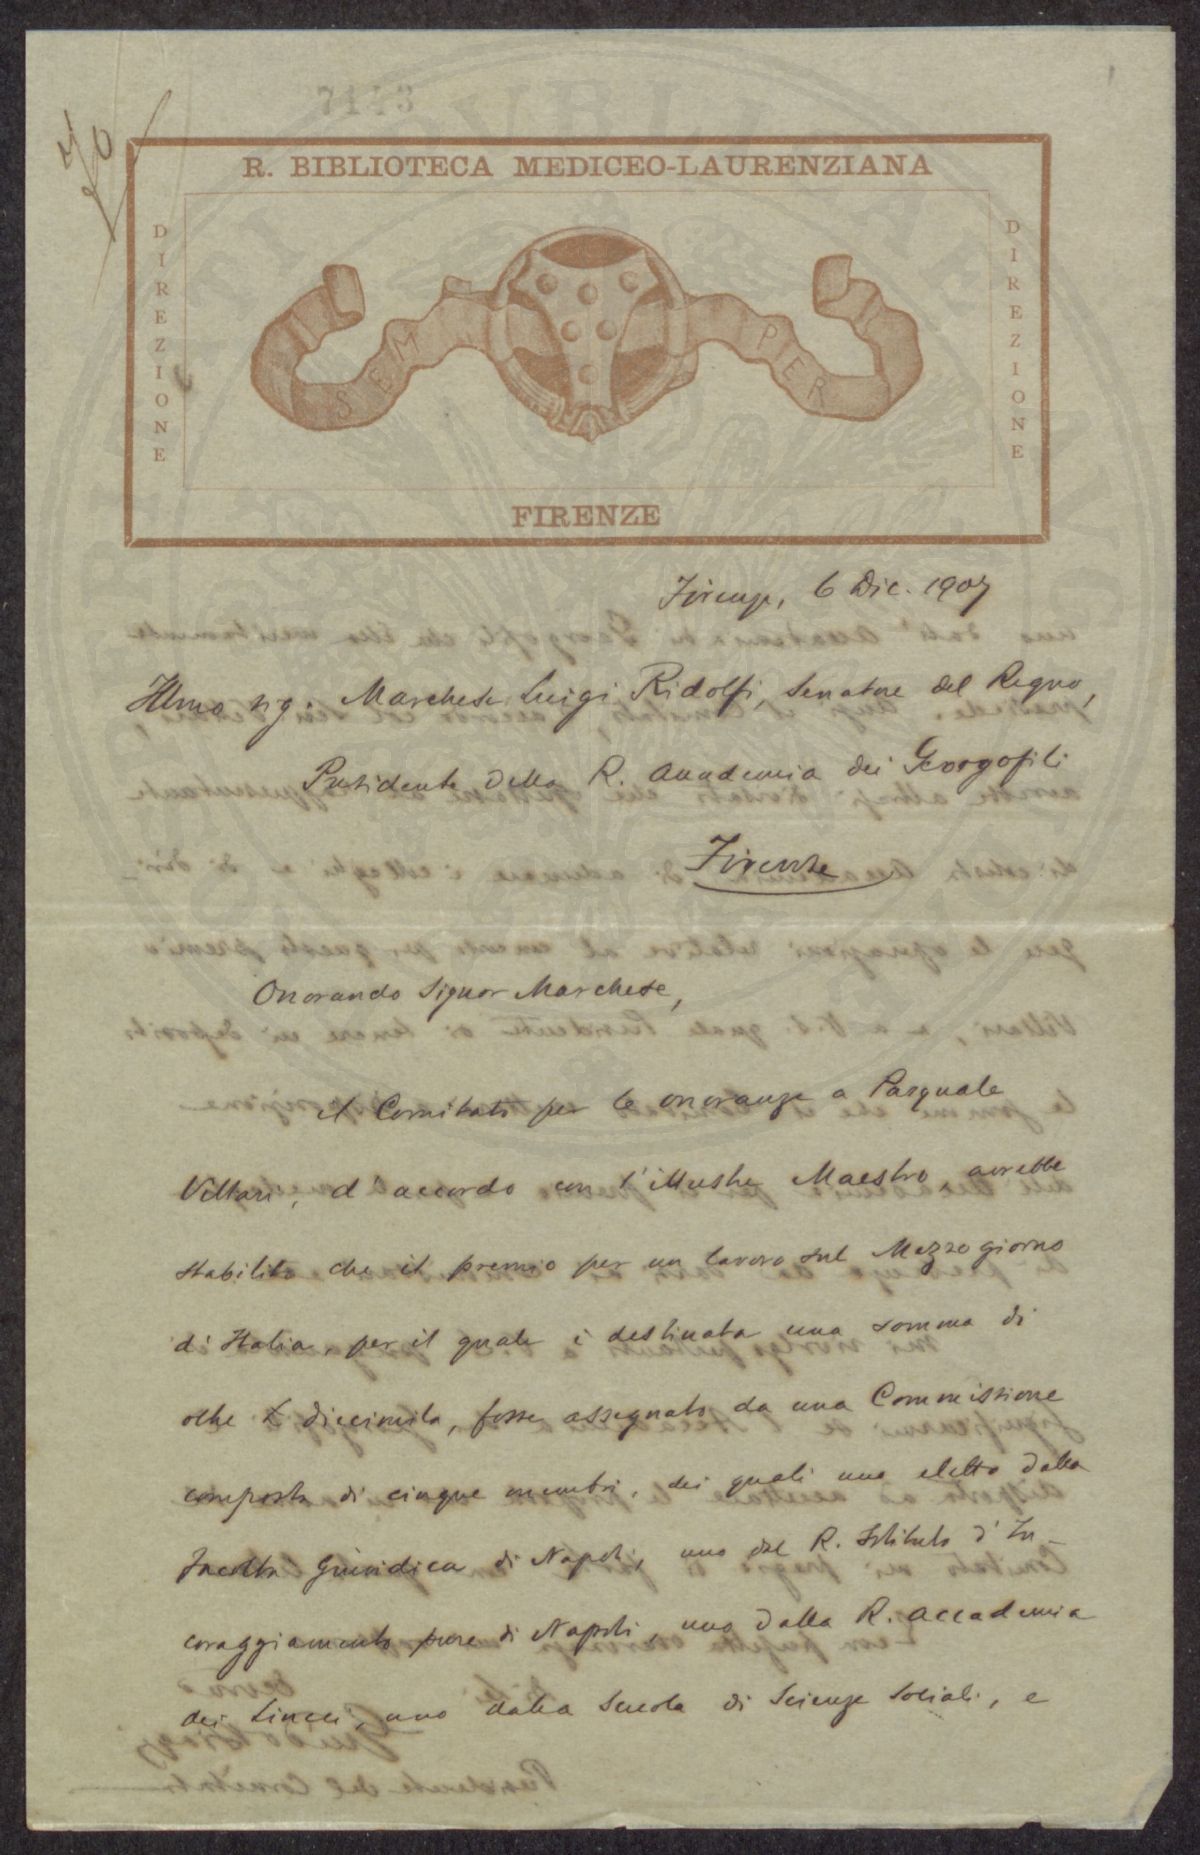 7113
R. BIBLIOTECA MEDICEO-LAURENZIANA
DIREZIONE
SEMPER
DIREZIONE
FIRENZE
Firenze, 6 Dic. 1907
Illmo sig. Marchese Luigi Ridolfi, Senatore del Regno,
Presidente della R. Accademia dei Georgofili
Firenze
Onorando Signor Marchese,
il Comitato per le onoranze a Pasquale
Villari, d'accordo con l'illustre Maestro, avrebbe
stabilito che il premio per un lavoro sul Mezzogiorno
d'Italia, per il quale è destinata una somma di
oltre £ diecimila, fosse assegnato da una Commissione
composta di cinque membri, dei quali uno eletto dalla
Facoltà Giuridica di Napoli, uno dal R. Istituto d'In-
coraggiamento pure di Napoli, uno dalla R. Accademia
dei Lincei, uno dalla Scuola di Scienze Sociali, e